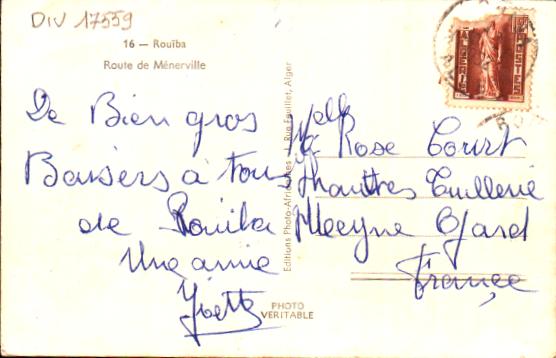 DIV 17559
16 — Rouïba
Route de Ménerville
De Bien gros
Baisers à tous
de Rouiba
Une amie
Yvette
Editions Photo-Africaines — Rue Feuillet, Alger
PHOTO
VERITABLE
ALGERIE
POSTES
Melle
Rose Court
Tuillerie
Meyne Gard
France